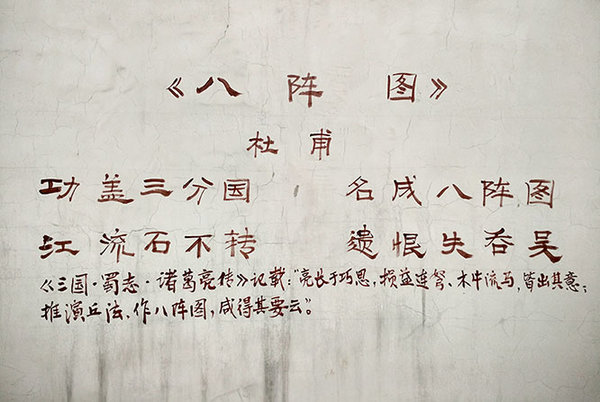 《八阵图》
杜甫
功盖三分国 名成八阵图
江流石不转 遗恨失吞吴
《三国·蜀志·诸葛亮传》记载:“亮长于巧思,损益连弩、木牛流马,皆出其意;
推演兵法、作八阵图,咸得其要云”。